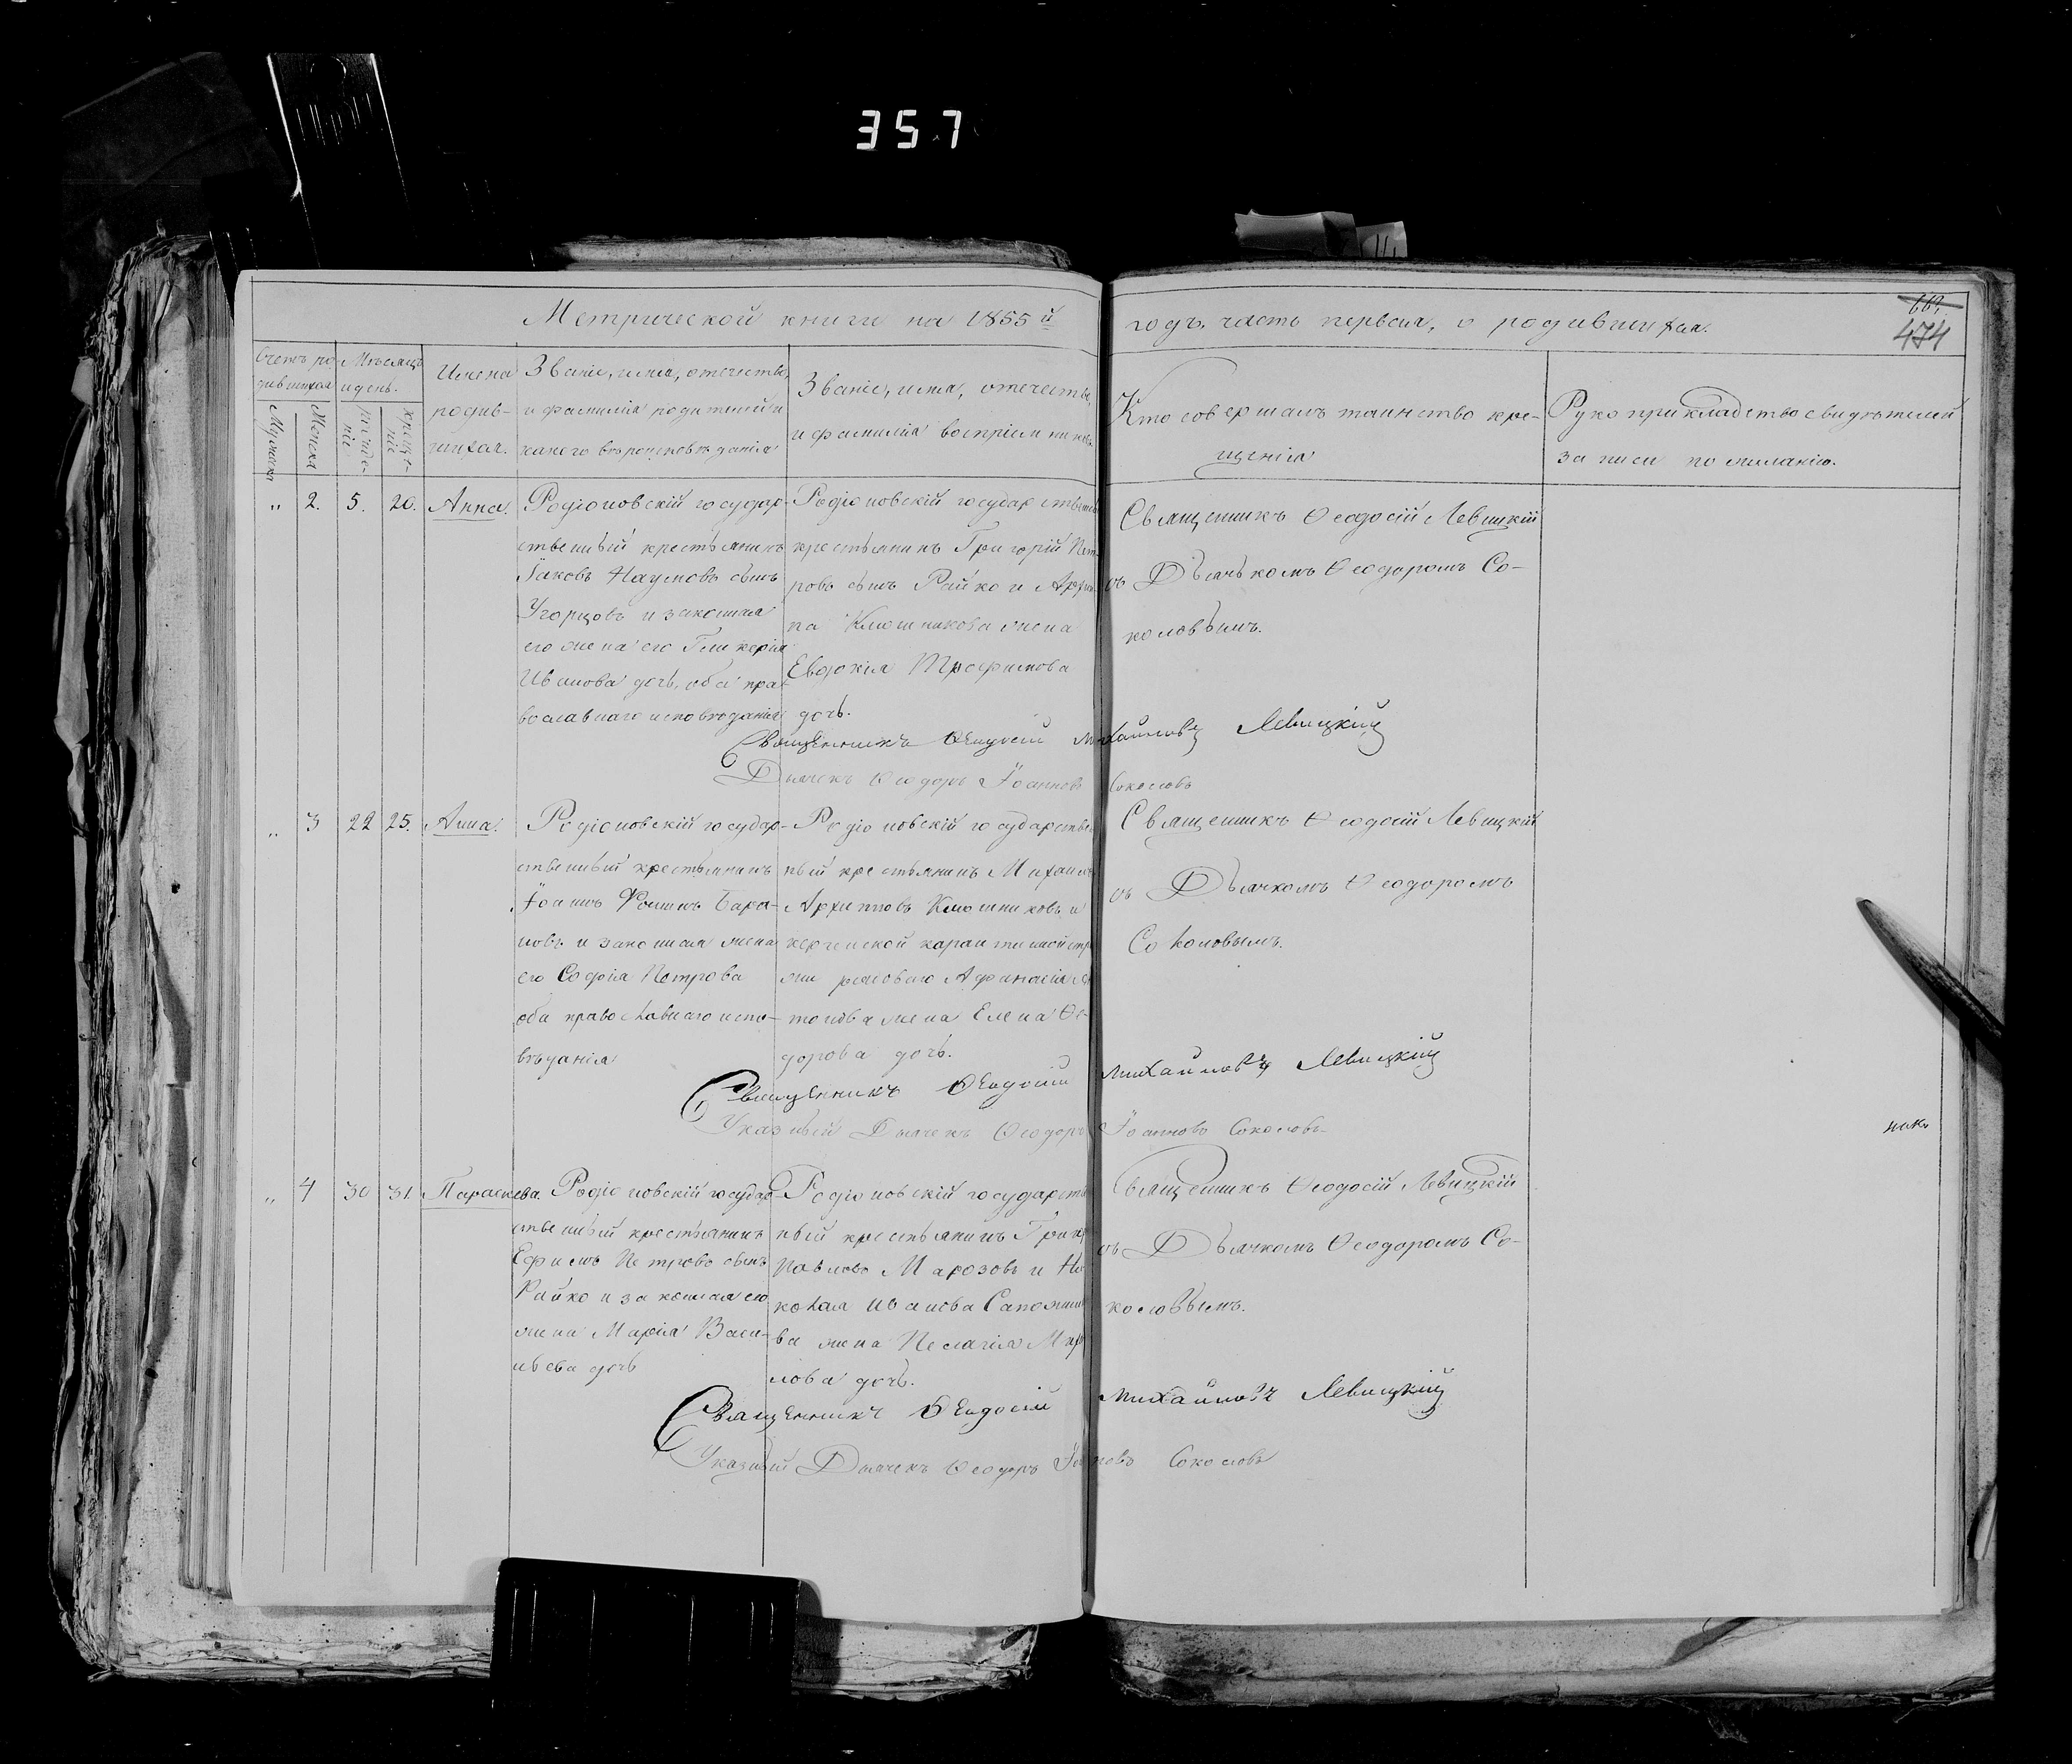 357
Метрической книги на 1855й годъ. часть первая, о родившихся.
474
Счетъ ро-
дившихся
Мужеска
Женска
Мѣсяцъ
и день.
Рожде-
ніе
Креще-
ніе
Имена
родив-
шихся.
Званіе, имя, отечество,
и фамилія родителей и
какого вѣроисповѣданія
Званіе, имя, отечество,
и фамилія воспріемниковъ
Кто совершалъ таинство кре-
щенія
Рукоприкладство свидѣтелей
записи по желанію.
„ 2. 5. 20. Анна.
Родіоновскій государ-
ственный крестьянинъ
Іаковъ Наумовъ сынъ
Угорцовъ и законная
его жена его Гликерія
Иванова дочь, оба пра-
вославнаго исповѣданія
Родіоновскій государствен
крестьянинъ Григорій Пет-
ровъ сынъ Райко и
па Ключникова жена
Евдокія Трофимова
дочь.
Священникъ Ѳеодосій Левицкій
съ Дьячькомъ Ѳеодоромъ Со-
коловымъ.
Священникъ Ѳеодосій Михайловъ Левицкій
Дьячекъ Ѳеодоръ Іоанновъ Соколовъ
„ 3 22 25. Анна.
Родіоновскій государ-
ственный крестьянинъ
Іоаннъ Фоминъ Бара-
новъ и законная жена
его Софія Петрова
оба православнаго испо-
вѣданія
Родіоновскій государствен
ный крестьянинъ Михаилъ
Архиповъ Ключниковъ и
керченской карантинной стра
жи рядового Афанасія
тонова жена Елена Ѳе-
дорова дочь.
Священникъ Ѳеодосій Левицкій
съ Дьячкомъ Ѳеодоромъ
Соколовымъ.
Священникъ Ѳеодосій Михайловъ Левицкій
Указный Дьячекъ Ѳеодоръ Іоанновъ Соколовъ
„ 4 30 31. Параскева.
Родіоновскій государ-
ственный крестьянинъ
Ефимъ Петровъ сынъ
Райко и законная его
жена Марія Васи-
льева дочь
Родіоновскій государств
ный крестьянинъ Григор
Павловъ Марозовъ и Ни
колая Иванова Сапожни
ва жена Пелагія
лова дочь.
Священникъ Ѳеодосій Левицкій
съ Дьячкомъ Ѳеодоромъ Со-
коловымъ.
Священникъ Ѳеодосій Михайловъ Левицкій
Указный Дьячекъ Ѳеодоръ Іоанновъ Соколовъ